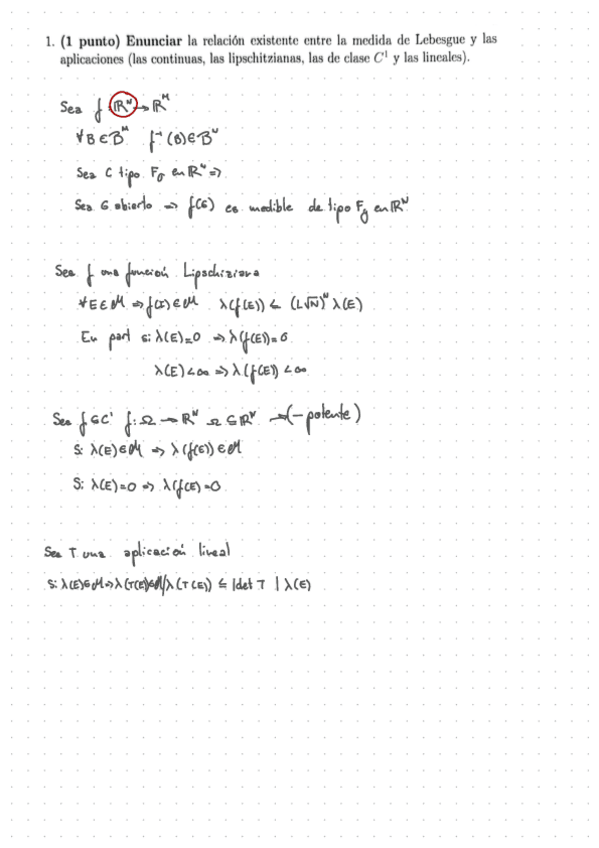 1. (1 punto) Enunciar la relación existente entre la medida de Lebesgue y las
aplicaciones (las continuas, las lipschitzianas, las de clase C¹ y las lineales).
Sea f ℝᴺ → ℝᴹ
∀B∈Bᴹ f⁻¹(B)∈Bᴺ
Sea C tipo Fσ en ℝᴺ ⇒
Sea G abierto ⇒ f(G) es medible de tipo Fσ en ℝᴺ
Sea f una función Lipschiziana
∀E∈M ⇒ f(E)∈M λ(f(E)) ≤ (L√N)ᴺ λ(E)
En part si λ(E)=0 ⇒ λ(f(E))=0
λ(E)<∞ ⇒ λ(f(E))<∞
Sea f∈C¹ f:Ω → ℝᴺ Ω⊆ℝᴺ → (- potente)
Si λ(E)∈M ⇒ λ(f(E))∈M
Si λ(E)=0 ⇒ λ(f(E)=0
Sea T una aplicación lineal
Si λ(E)∈M ⇒ λ(T(E))∈M/λ(T(E)) ≤ |det T| λ(E)